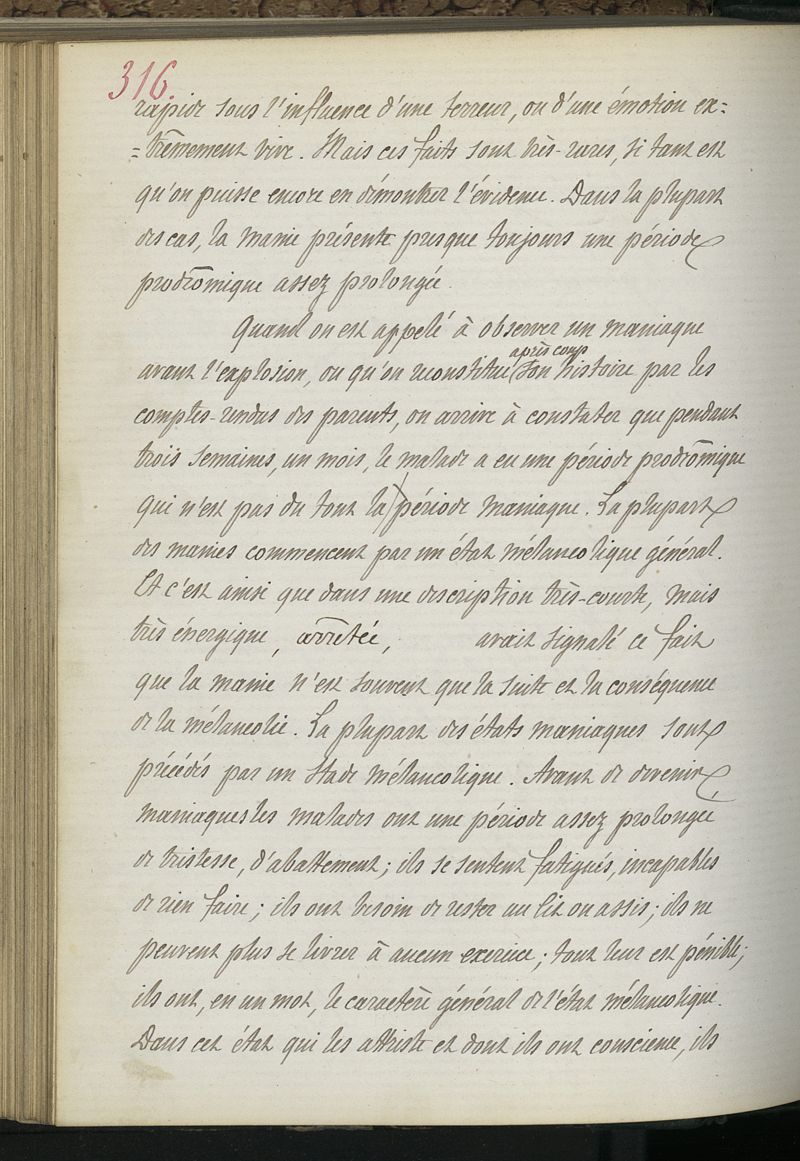 316.
rapide sous l'influence d'une terreur, ou d'une émotion ex=
=trêmement vive. Mais ces faits sont très-rares, si tant est
qu'on puisse encore en démontrer l'évidence. Dans la plupart
des cas, la manie présente presque toujours une période
prodrômique assez prolongée.
Quand on est appelé à observer un maniaque
après coup
avant l'explosion, ou qu'on reconstitue (son histoire par les
comptes-rendus des parents, on arrive à constater que pendant
trois semaines, un mois, le malade a eu une période prodrômique
qui n'est pas du tout la période maniaque. La plupart
des manies commencent par un état mélancolique général.
Et c'est ainsi que dans une description très-courte, mais
très énergique, arrêtée, avait signalé ce fait
que la manie n'est souvent que la suite et la conséquence
de la mélancolie. La plupart des états maniaques sont
précédés par un stade mélancolique. Avant de devenir
maniaques les malades ont une période assez prolongée
de tristesse, d'abattement; ils se sentent fatigués, incapables
de rien faire; ils ont besoin de rester au lit ou assis; ils ne
peuvent plus se livrer à aucun exercice; tout leur est pénible;
ils ont, en un mot, le caractère général de l'état mélancolique.
Dans cet état qui les attriste et dont ils ont conscience, ils